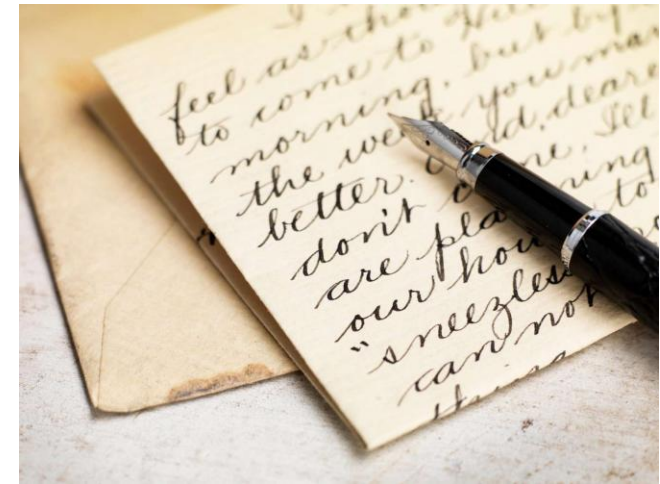 feel as tho
to come to
morning. but by
the wee you mar
better. d, deare
don't me. Ill
are pla ning
our hou to
"sneezless
can not
thing